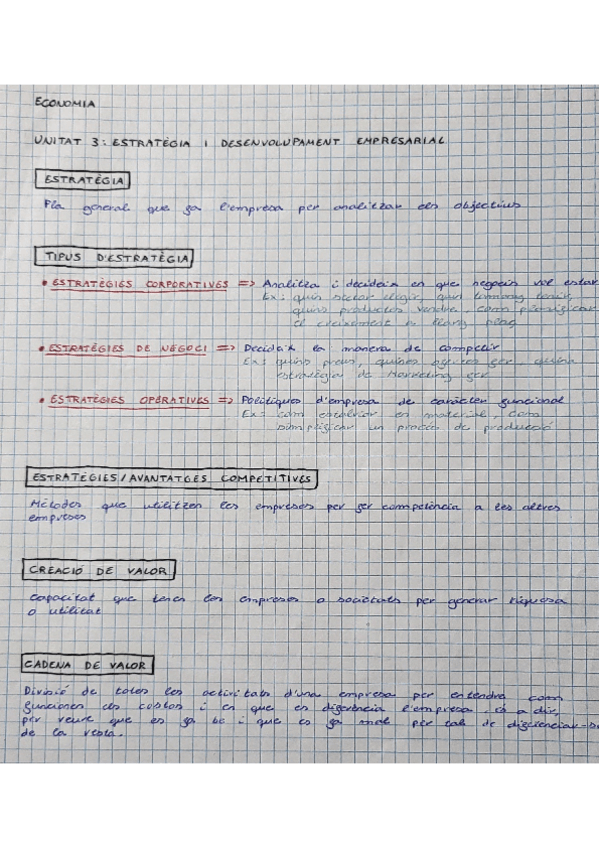 ECONOMIA
UNITAT 3: ESTRATÈGIA I DESENVOLUPAMENT EMPRESARIAL
ESTRATÈGIA
Pla general que fa l'empresa per analitzar els objectius
TIPUS D'ESTRATÈGIA
• ESTRATÈGIES CORPORATIVES => Analitza i decideix en que negocis vol estar
Ex: quin sector elegir, quin tamany tenir,
quins productes vendre, com planificar
el creixement a llarg plaç
• ESTRATÈGIES DE NEGOCI => Decideix la manera de competir
Ex: quins preus, quines ofertes fer, quina
estratègia de Marketing fer
• ESTRATÈGIES OPERATIVES => Polítiques d'empresa de caràcter funcional
Ex: com estalviar en material, com
simplificar un procés de producció
ESTRATÈGIES/AVANTATGES COMPETITIVES
Mètodes que utilitzen les empreses per fer competència a les altres
empreses
CREACIÓ DE VALOR
Capacitat que tenen les empreses o societats per generar riquesa
o utilitat
CADENA DE VALOR
Divisió de totes les activitats d'una empresa per entendre com
funcionen els costos i en que es diferència l'empresa. és a dir,
per veure que es fa bé i que es fa mal per tal de diferenciar-se
de la resta.